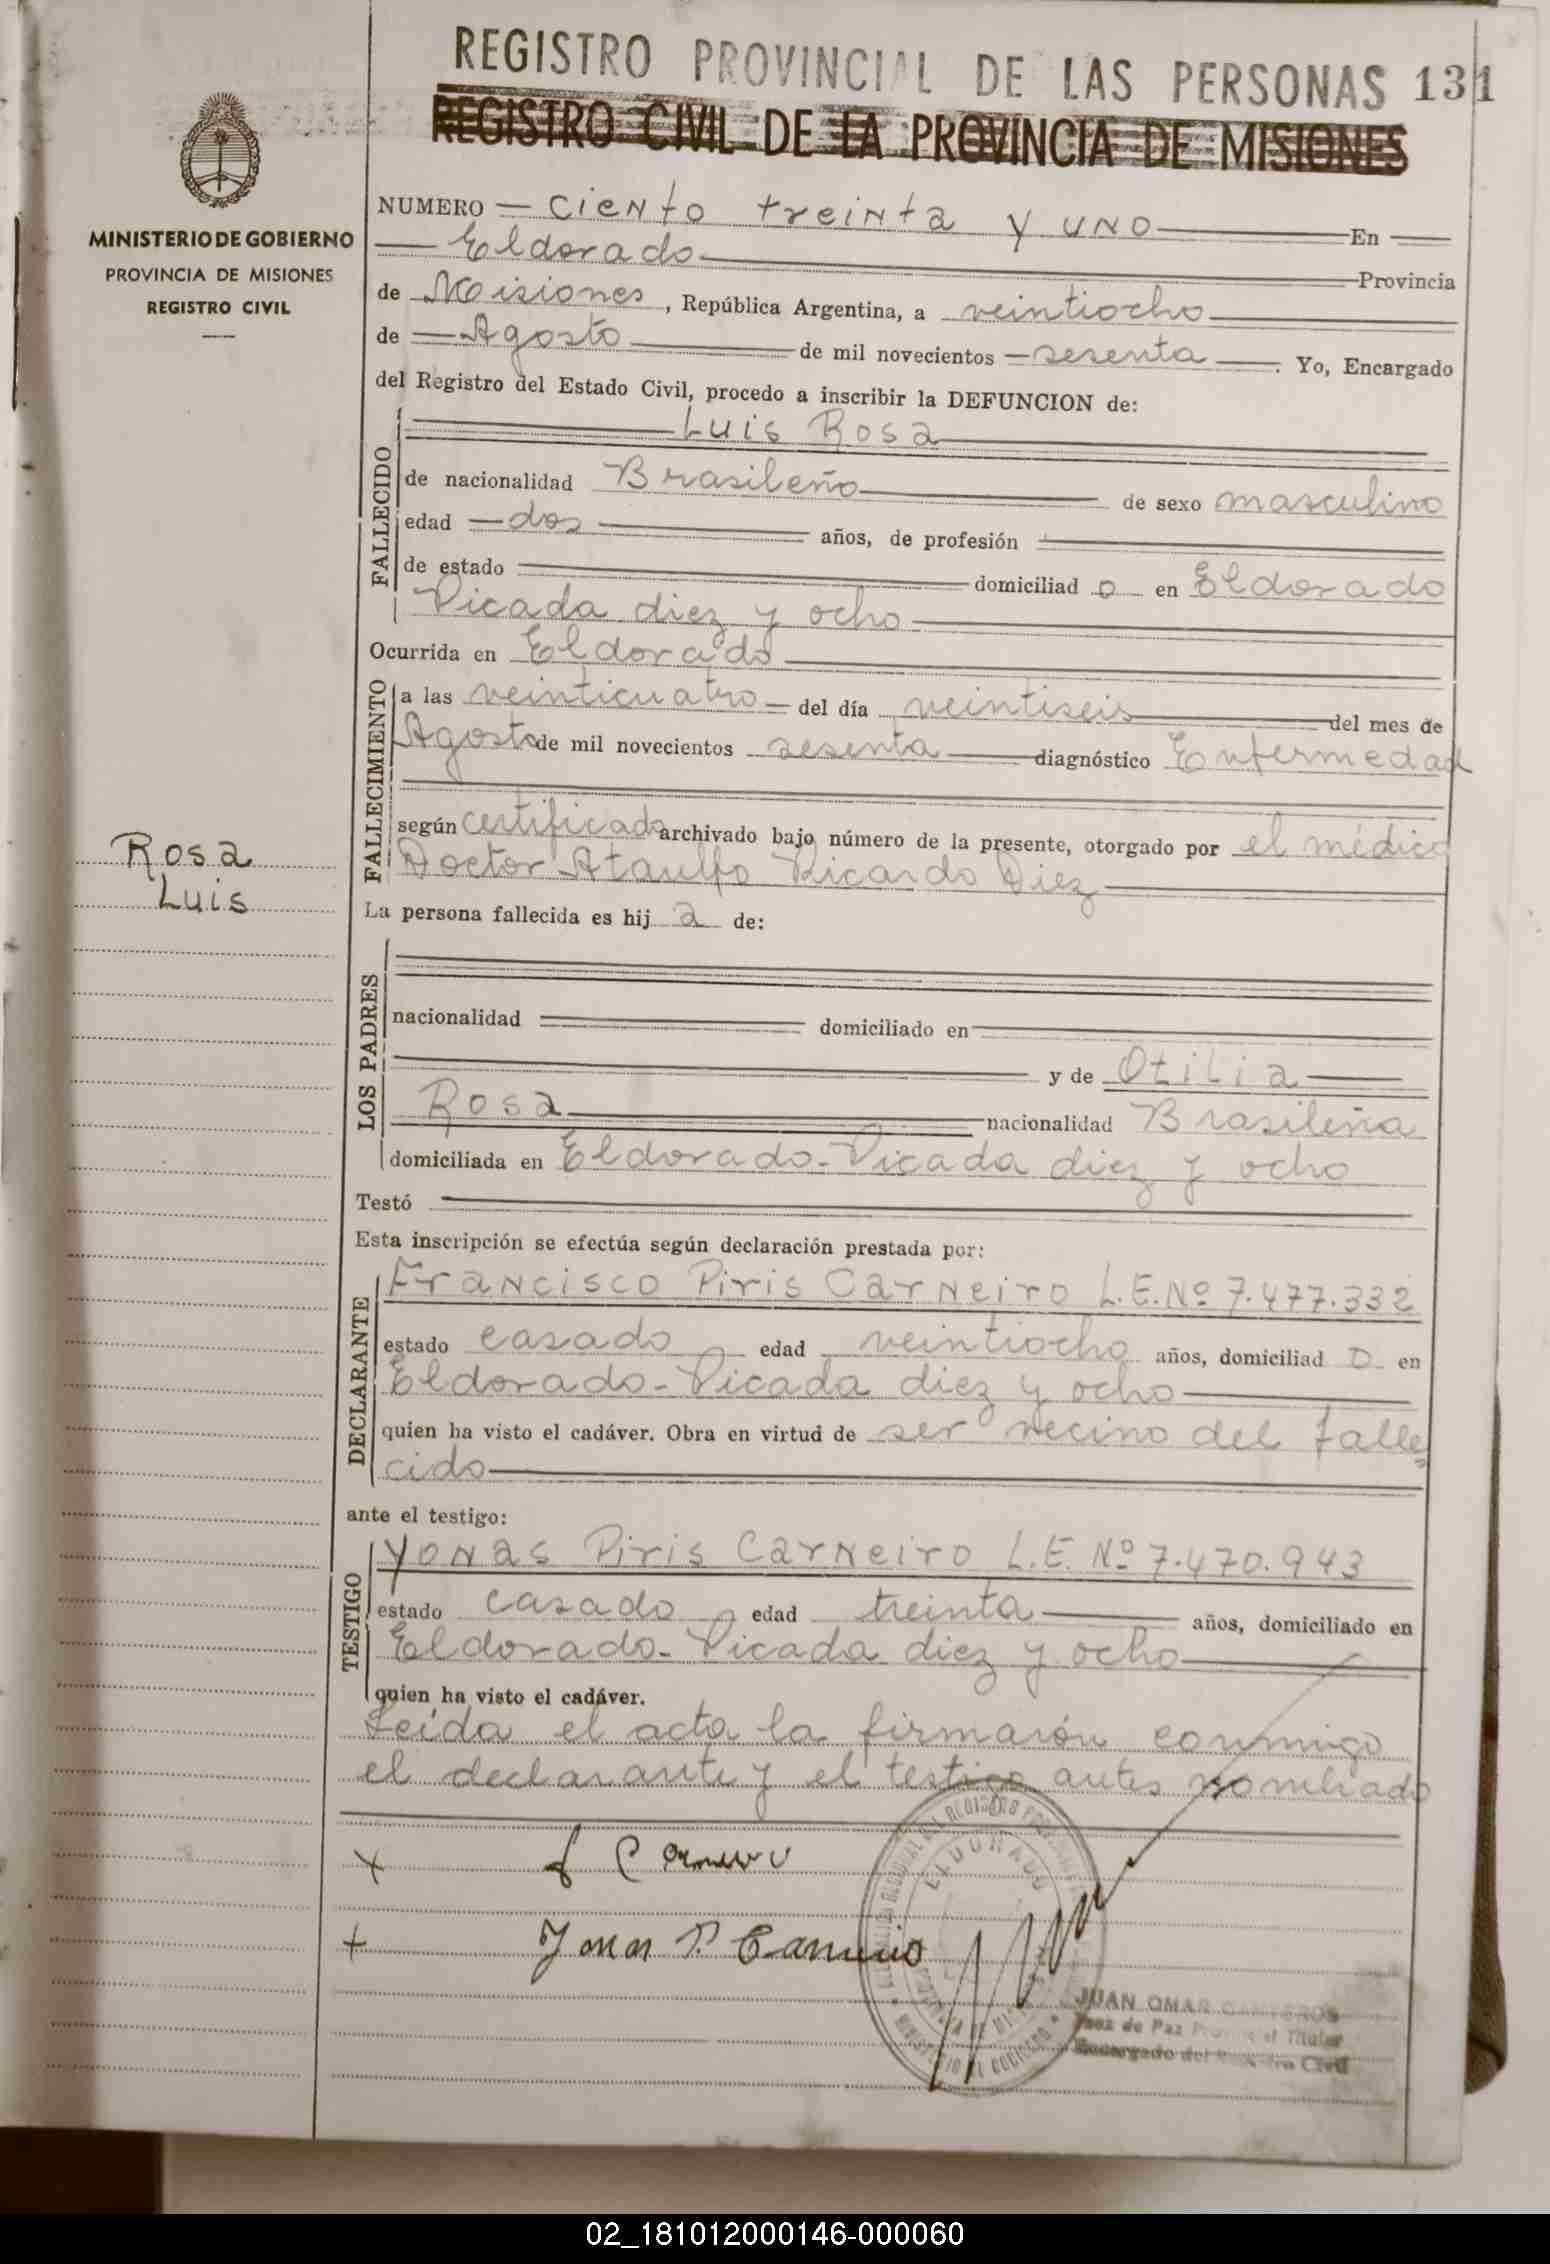 REGISTRO PROVINCIAL DE LAS PERSONAS 131
REGISTRO CIVIL DE LA PROVINCIA DE MISIONES
MINISTERIO DE GOBIERNO
PROVINCIA DE MISIONES
REGISTRO CIVIL
NUMERO ciento treinta y uno En
Eldorado Provincia
de Misiones, República Argentina, a veintiocho
de Agosto de mil novecientos sesenta. Yo, Encargado
del Registro del Estado Civil, procedo a inscribir la DEFUNCION de:
FALLECIDO
Luis Rosa
de nacionalidad Brasileño de sexo masculino
edad dos años, de profesión
de estado domiciliad o en Eldorado
Picada diez y ocho
Ocurrida en Eldorado
FALLECIMIENTO
a las veinticuatro del día veintiseis del mes de
Agosto de mil novecientos sesenta diagnóstico Enfermedad
según certificado archivado bajo número de la presente, otorgado por el médico
Doctor Ataulfo Ricardo Diez
Rosa
Luis
La persona fallecida es hij a de:
LOS PADRES
nacionalidad domiciliado en
y de Otilia
Rosa nacionalidad Brasileña
domiciliada en Eldorado-Picada diez y ocho
Testó
Esta inscripción se efectúa según declaración prestada por:
DECLARANTE
Francisco Piris Carneiro L.E.Nº 7.477.332
estado casado edad veintiocho años, domiciliad o en
Eldorado-Picada diez y ocho
quien ha visto el cadáver. Obra en virtud de ser vecino del falle
cido
ante el testigo:
TESTIGO
Yonas Piris Carneiro L.E. Nº 7.470.943
estado casado edad treinta años, domiciliado en
Eldorado-Picada diez y ocho
quien ha visto el cadáver.
Leída el acta la firmarón conmigo
el declarante y el testigo antes nombrado
ELDORADO
Jonas P. Carneiro
JUAN OMAR CANTEROS
Juez de Paz Provincial Titular
Encargado del Registro Civil
02_181012000146-000060